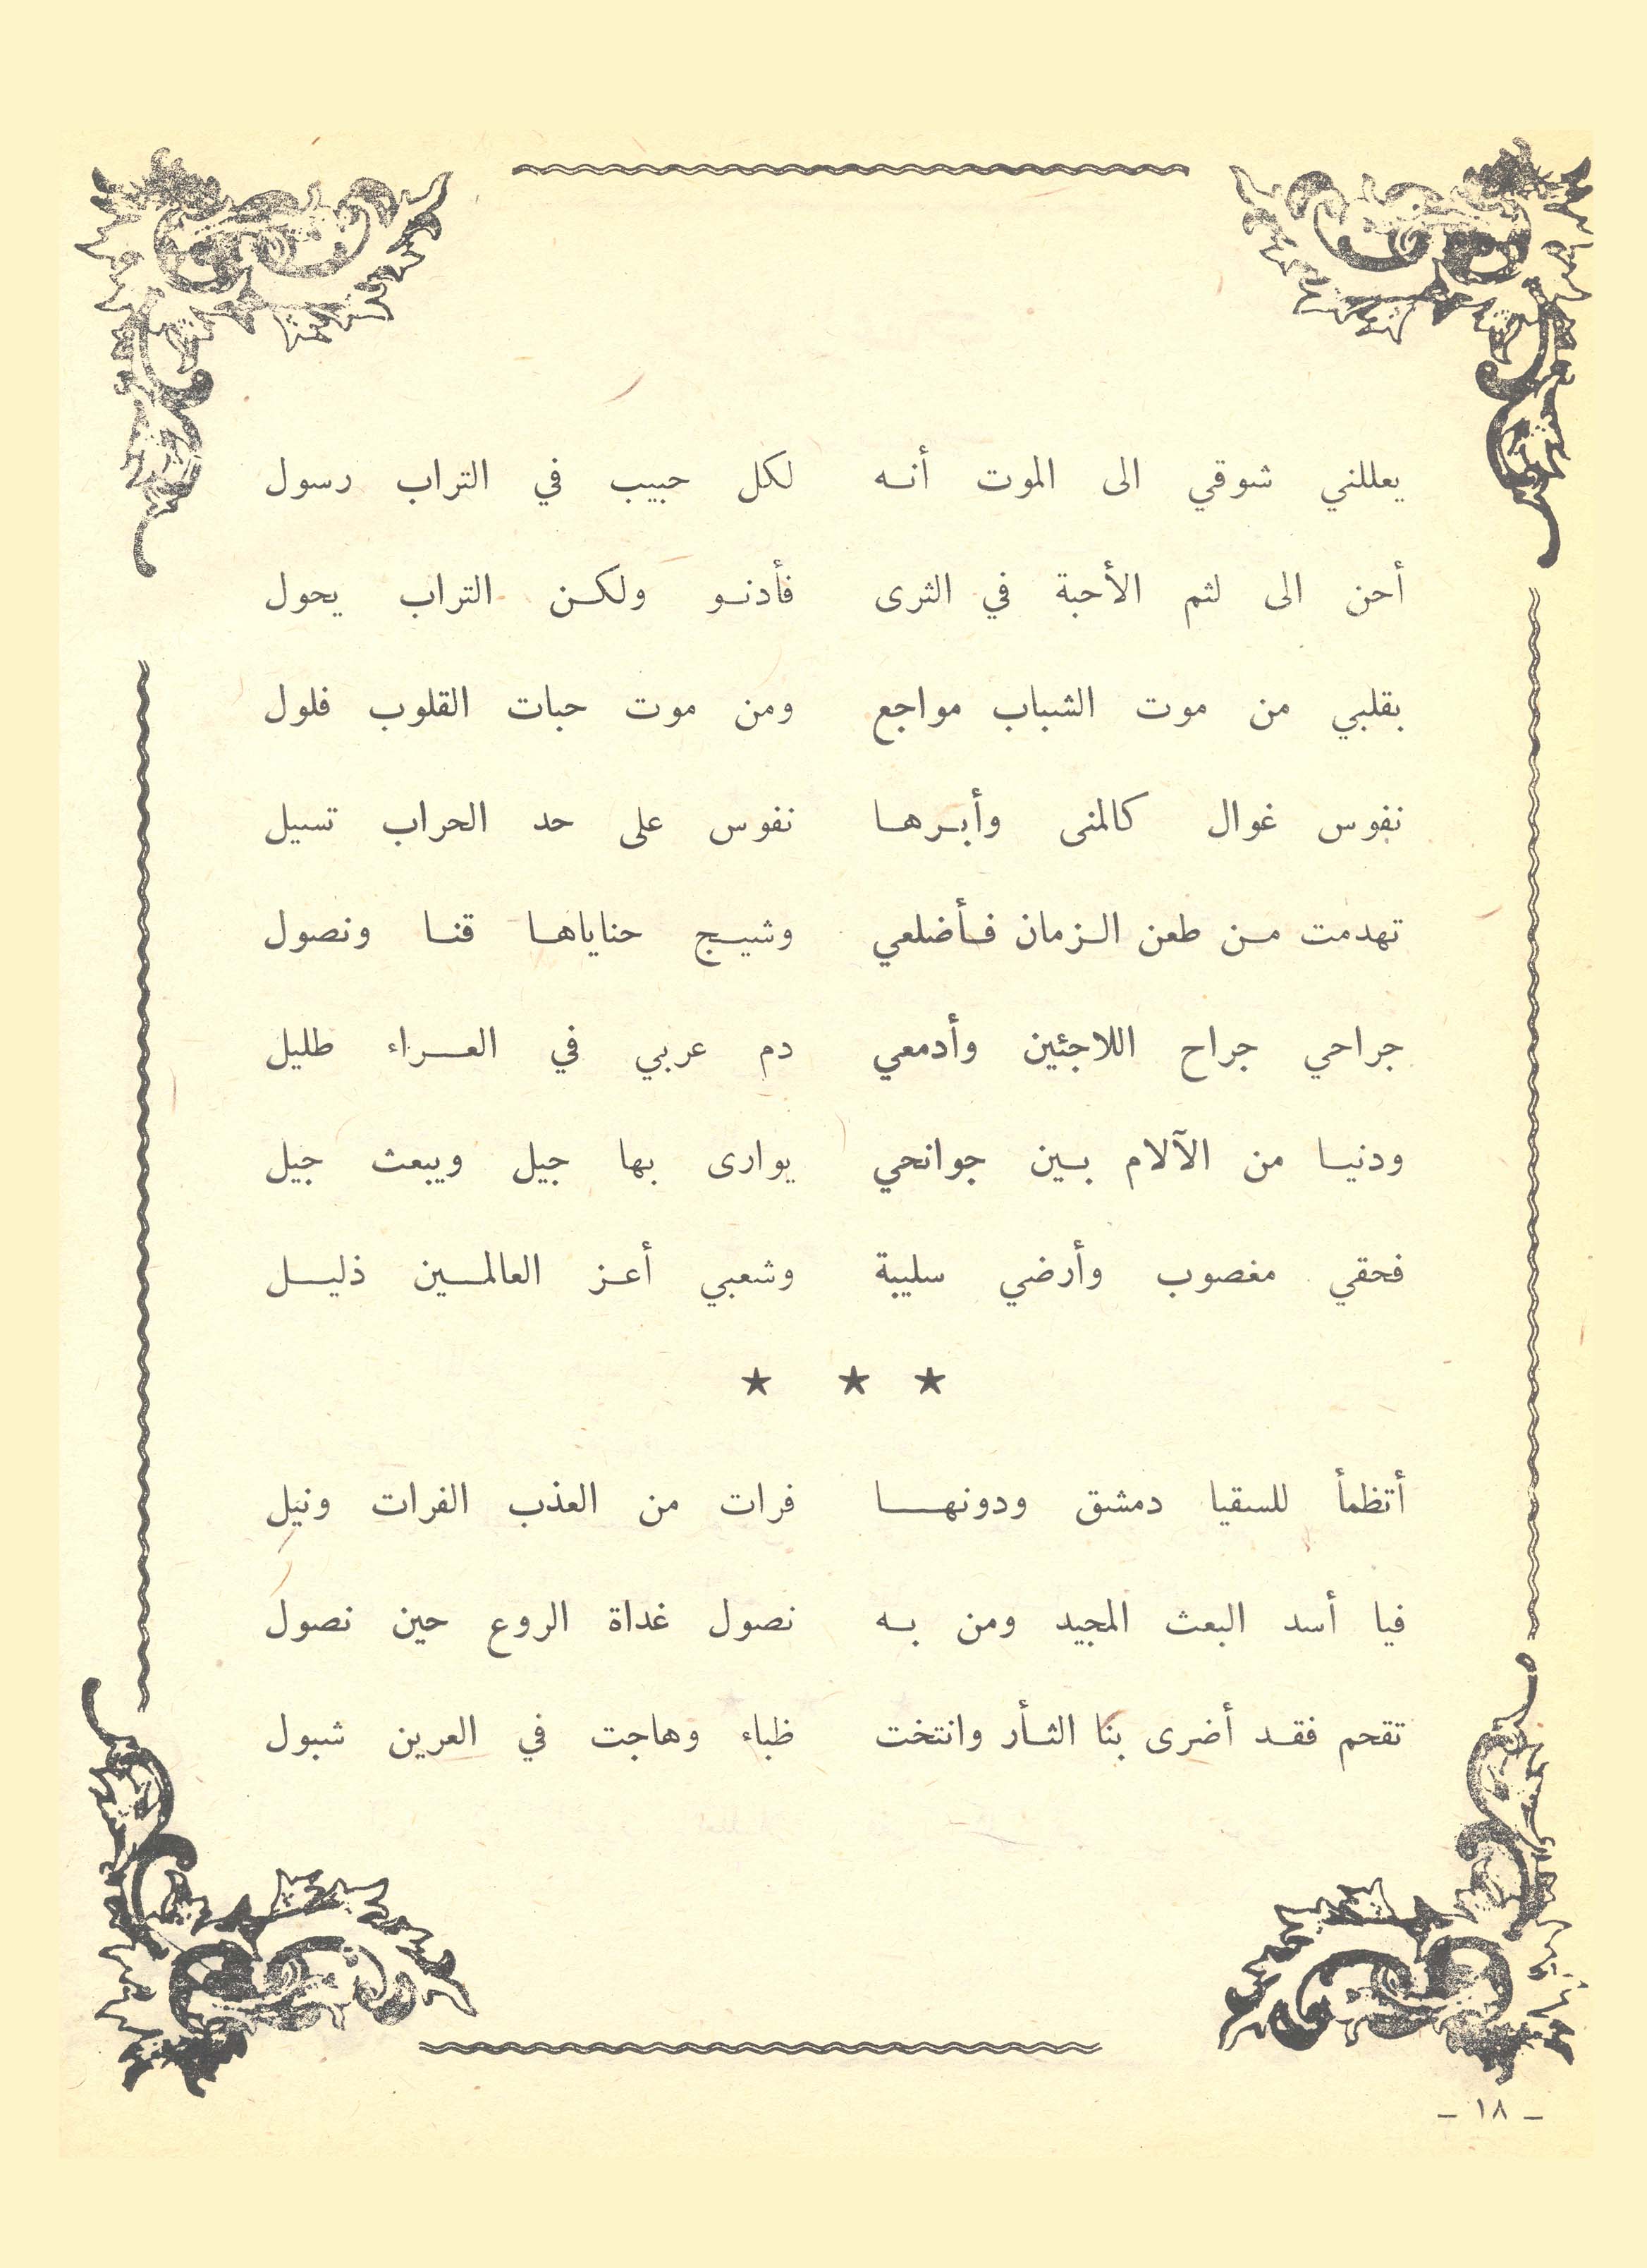 يعللني شوقي الى الموت أنه لكل حبيب في التراب رسول
أحن الى لثم الأحبة في الثرى فأدنو ولكن التراب يحول
بقلبي من موت الشباب مواجع ومن موت حبات القلوب فلول
نفوس غوال كالمنى وأبرها نفوس على حد الحراب تسيل
تهدمت من طعن الزمان فأضلعي وشيج حناياها قنا ونصول
جراحي جراح اللاجئين وأدمعي دم عربي في العراء طليل
ودنيا من الآلام بين جوانحي يوارى بها جيل ويبعث جيل
فحقي مغصوب وأرضي سليبة وشعبي أعز العالمين ذليل
★ ★ ★
أتظمأ للسقيا دمشق ودونها فرات من العذب الفرات ونيل
فيا أسد البعث المجيد ومن به نصول غداة الروع حين نصول
تقحم فقد أضرى بنا الثأر وانتخت ظباء وهاجت في العرين شبول
– ١٨ –